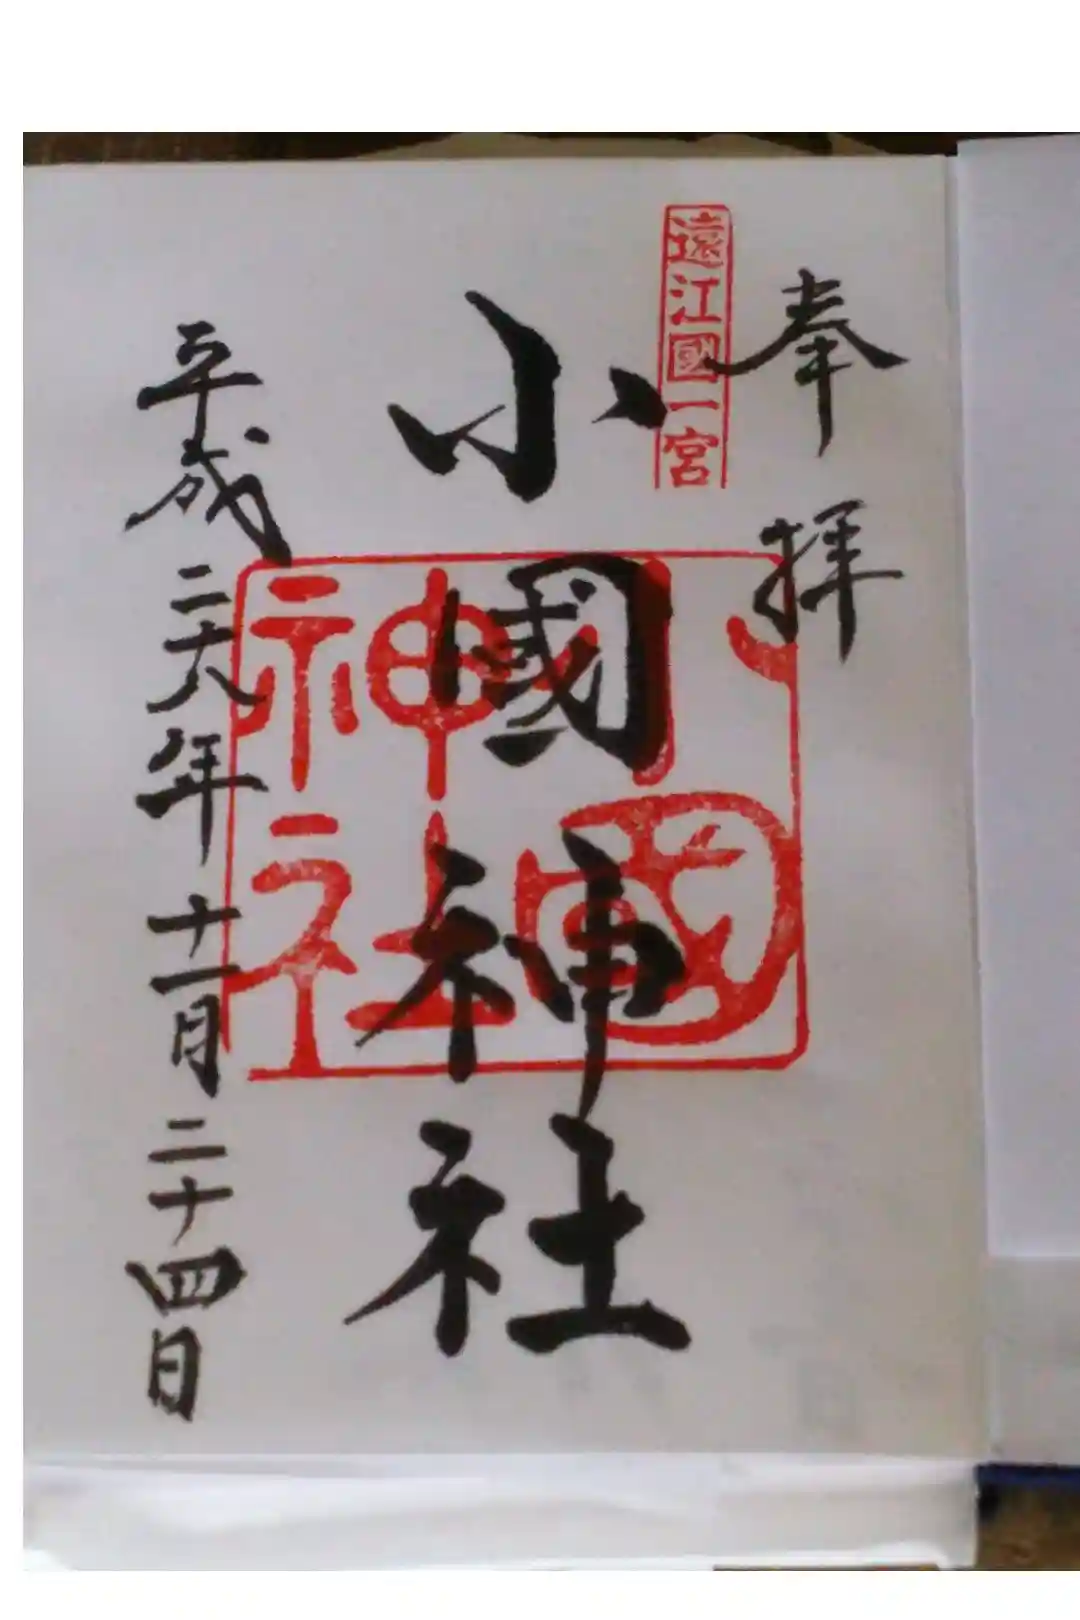 奉拝
遠江國一宮
小國神社
小國神社
平成二十六年十一月二十四日